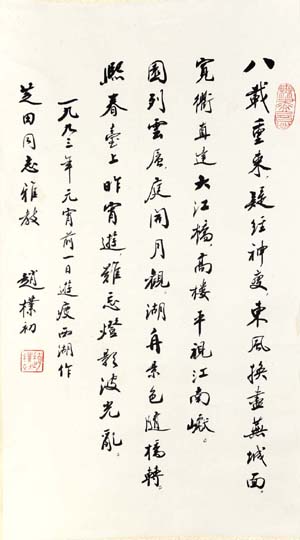 八載重來，疑經神變，東風換盡蕪城面。
寬衢直達大江橋，高樓平視江南巘。
園列雲屏，庭開月觀，湖舟景色隨橋轉。
熙春臺上昨宵遊，難忘燈影波光亂。
一九九三年元宵前一日遊瘦西湖作
芝田同志雅教 趙樸初